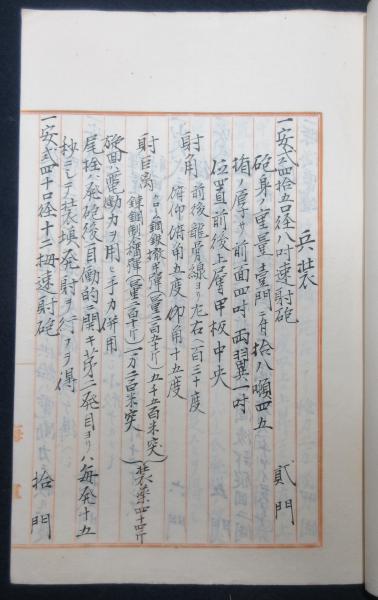 兵装
一安式四拾五口径八吋速射砲 貳門
砲身ノ重量壹門ニ付拾八噸四五
楯ノ厚サ前面四吋両翼一吋
位置前後上層甲板中央
射角 前後龍骨線ヨリ左右ヘ百三十度
俯仰 俯角五度仰角十五度
射距離 鋼鉄榴弾(量二百五十斤)五千五百米突 装薬四十四斤
錬鋼製榴弾(量二百五十斤)一万二百米突
旋回 電動力ヲ用ヒ手力併用
尾栓ハ発砲後自働的ニ開キ第二発目ヨリハ毎発十五
秒ニテ装填発射ヲ行フヲ得
一安式四十口径十二拇速射砲 拾門